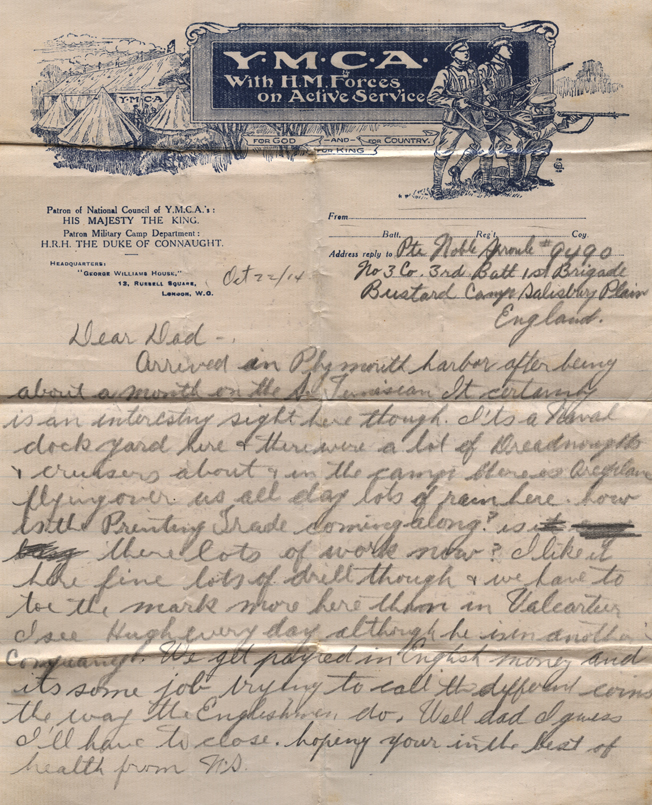 Y.M.C.A.
Y.M.C.A.
With H.M. Forces
on Active Service
FOR GOD —AND— FOR COUNTRY.
FOR KING
Patron of National Council of Y.M.C.A.'s:
HIS MAJESTY THE KING.
Patron Military Camp Department:
H.R.H. THE DUKE OF CONNAUGHT.
HEADQUARTERS:
"GEORGE WILLIAMS HOUSE,"
13, RUSSELL SQUARE,
LONDON, W.C.
Oct 22/14
From
Batt. Reg't Coy
Address reply to Pte Noble Sproule #9490
No 3 Co. 3rd Batt 1st Brigade
Bustard Camp Salisbury Plain
England.
Dear Dad -.
Arrived in Plymouth harbor after being
about a month on the Tunisian It certainly
is an interesting sight here though. It's a Naval
dock yard here & there were a lot of Dreadnoughts
& cruisers about & in the camp there is
flying over us all day lots of rain here. how
is the Printing Trade coming along? is
there lots of work now? I like it
here fine lots of drill though & we have to
toe the mark more here than in Valcartier
I see Hugh every day although he is in another
We get payed in English money and
its some job trying to call the different coins
the way the Englishmen do. Well dad I guess
I'll have to close. hoping your in the best of
health from N.S.